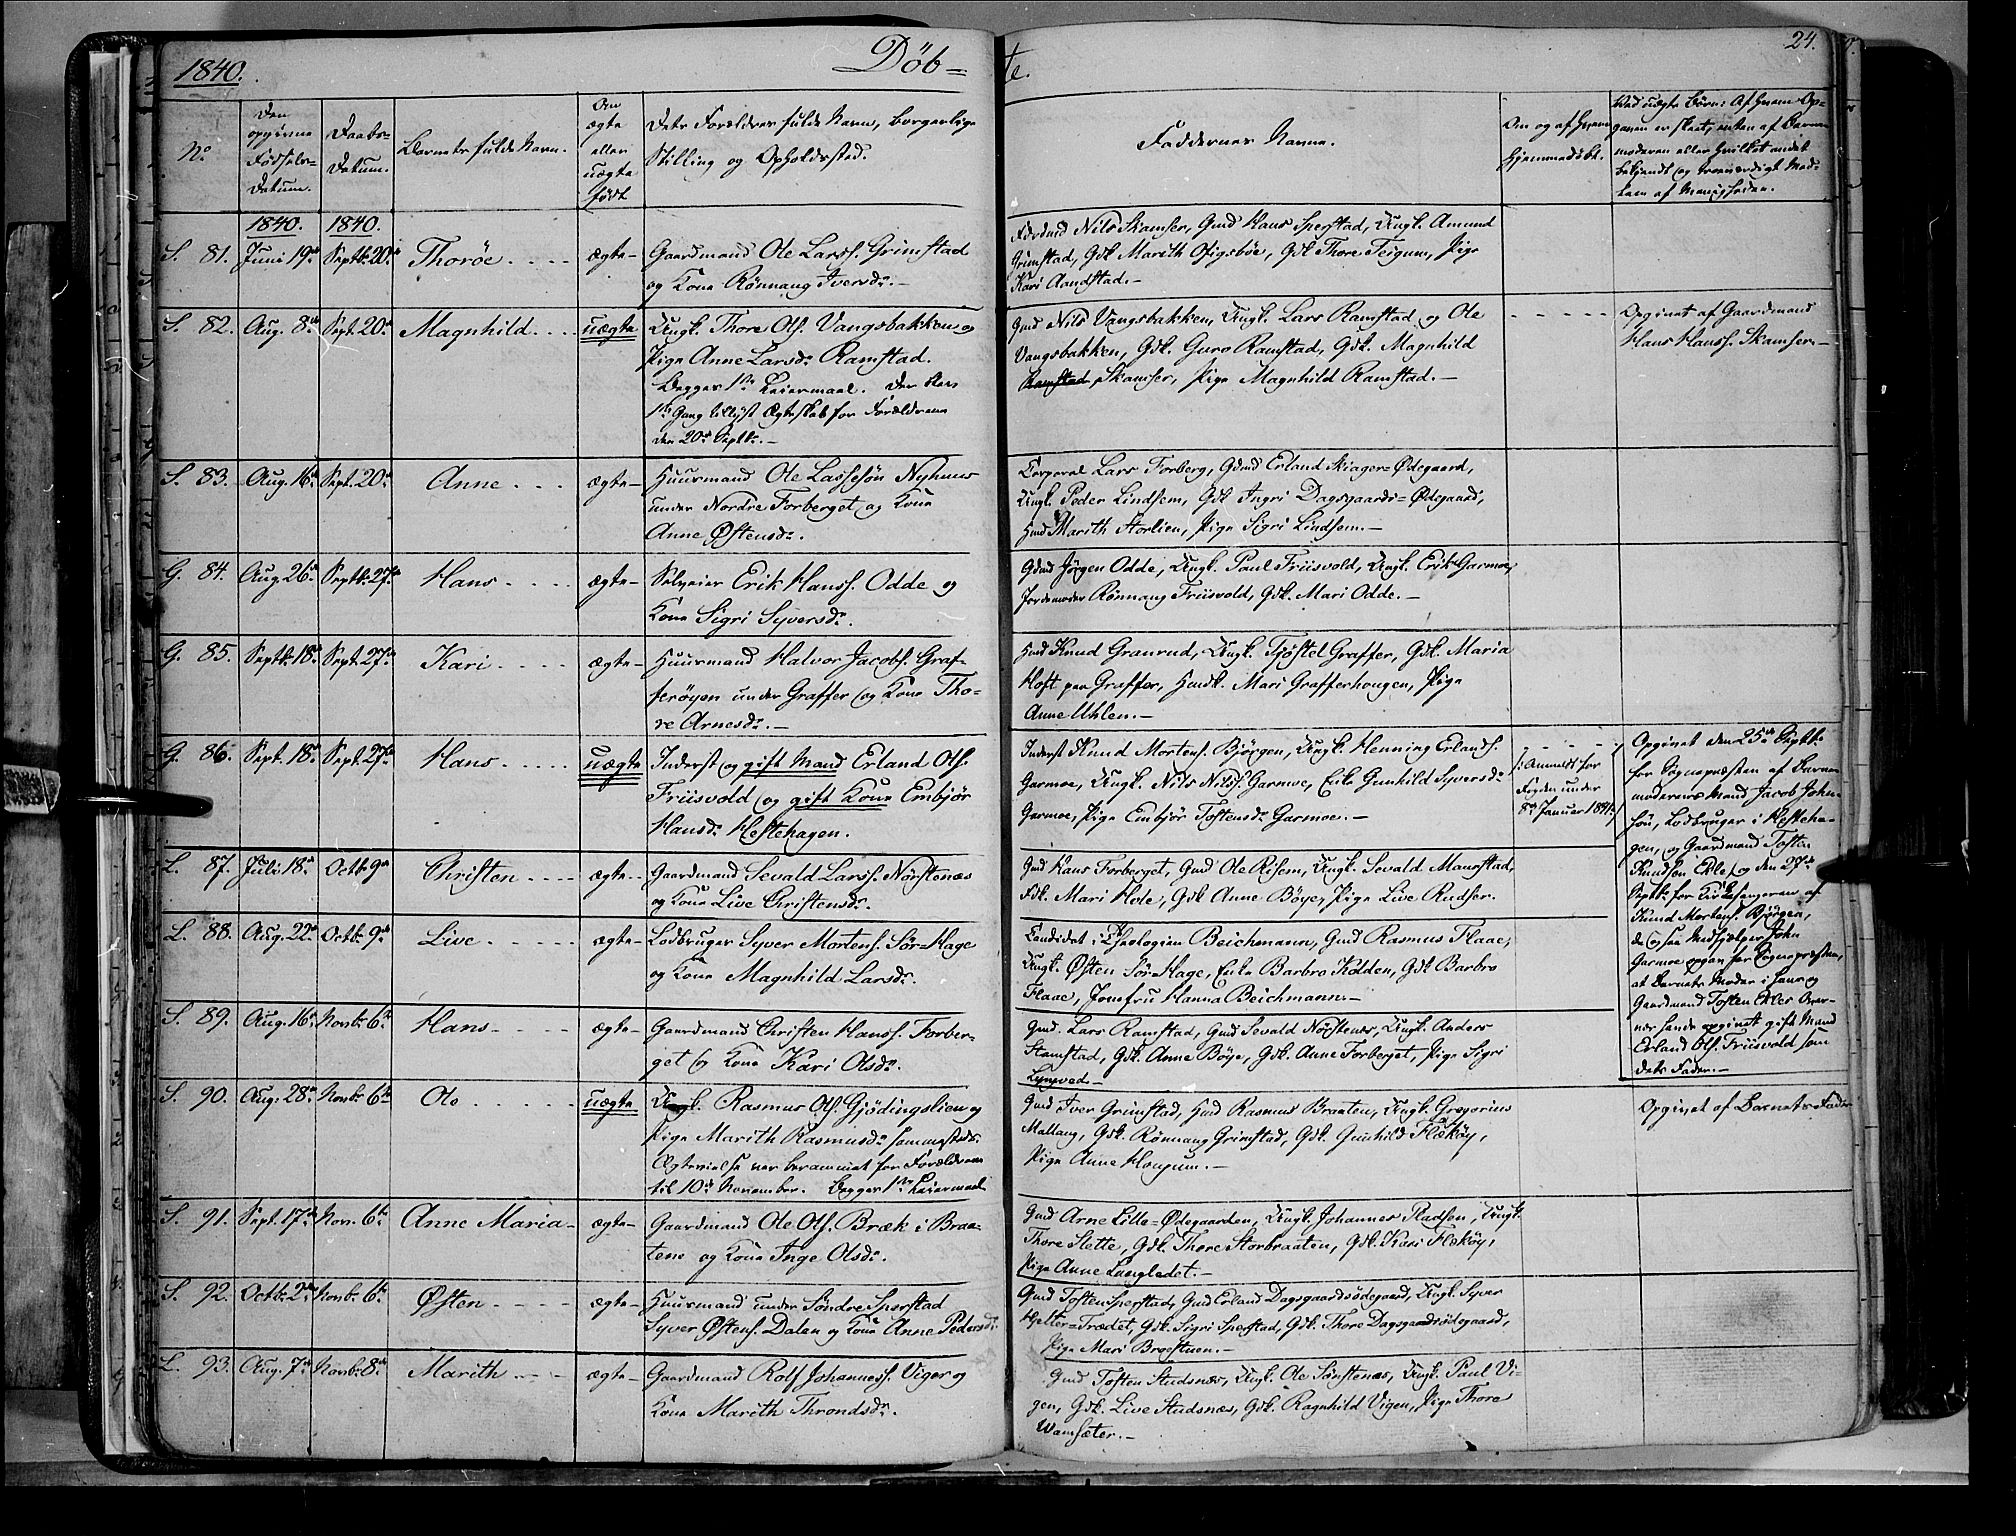 1840.
Döb=
te.
24.
No
Den
opgivne
Fødsels-
Datum.
Daabs-
Datum.
Barnets fulde Navn.
Om
ægte
eller
uægte
født
Dets Forældres fulde Navn, borgerlige
Stilling og Opholdssted.
Faddernes Navne.
Om og af hvem
hjemmedøbt.
Ved uægte Børn: Af hvem Op-
gaven er skeet, enten af Barne-
moderen eller hvilket andet
bekjendt og troværdigt Med-
lem af Menigheden.
1840. 1840.
S. 81. Juni 19de Septb. 20de Thoróe ægte- Gaardmand Ole Larss. Grimstad
og Kone Rønnaug Iversdr.-
Nils Skamser, Gmd Hans Sperstad, Ungk. Amund
Grimstad, Gdk. Marith Ofigsbøe, Gdk Thore Teigum, Pige
Kari Aandstad.-
S. 82. Aug. 8de Sept. 20de Magnhild uægte Ungk. Thore Ols. Vangsbakken og
Pige Anne Larsdr. Ramstad.
Begges 1ste Leiermaal. Der blev
1ste Gang tillyst Ægteskab for Forældrene
den 20de Septbr.-
Gmd Nils Vangsbakken, Ungk. Lars Ramstad og Ole
Vangsbakken, Gdk. Guro Ramstad, Gdk. Magnhild
Ramstad, Skamser, Pige Magnhild Ramstad.-
Opgivet af Gaardmand
Hans Hanss. Skamser.-
S. 83. Aug. 16de Sept. 20de Anne ægte- Huusmand Ole Lassesøn Nyhuus
under Nordre Forberget og Kone
Anne Østensdr.
Corporal Lars Forberg, Gdmd Erland Skiager-Ødegaard,
Ungk. Peder Lindsem, Gdk Ingri Dagsgaards=Ødegaard,
Hmd Marith Storlien, Pige Sigri Lindsem.-
G. 84. Aug. 26de Septb. 27de Hans ægte- Selveier Erik Hanss. Odde og
Kone Sigri Syversdr.
Gdmd Jörgen Odde, Ungk. Paul Friisvold, Ungk. Erik Garmoe,
Jordmoder Rönnaug Friisvold, Gdk. Mari Odde.-
G. 85. Septb. 18de Sept. 27de Kari ægte- Huusmand Halvor Jacobs. Graf-
feröyen under Graffer og Kone Tho-
re Arnesdr.-
Hmd Knud Granrud, Ungk. Tjöstel Graffer, Gdk. Maria
Hoft paa Graffer, Hmdk. Mari Grafferhougen, Pige
Anne Uhlen.-
G. 86. Sept. 18de Sept. 27de Hans uægte Inderst og gift Mand Erland Ols.
Friisvold og gift Kone Embjör
Hansdr. Hestehagen.
Inderst Knud Mortens. Bjørgen, Ungk. Henning Erlands.
Garmoe, Ungk. Nils Nilss. Garmoe, Enke Gunhild Syversdr.
Garmoe, Pige Embjør Toftensdr. Garmoe.-
Anmeldt for
Fogden under
8de Januar 1841.
Opgivet den 25de Septb.
for Sognepræsten af Barne-
moderens Mand Jacob John-
sön, Lodbruger i Hesteha-
gen, og Gaardmand Tosten
Knudsen Ekle, og den 27de
Septb. for Kirkesangeren af
Knud Mortens. Bjørgen,
da ogsaa Medhjælper John
Garmoe opgav for Sognepræsten,
at Barnets Moder i hans og
Gaardmand Tosten Ekles Over-
nær havde opgivet gift Mand
Erland Ols. Friisvold som
dets Fader.-
L. 87. Juli 18de Octb. 9de Christen ægte- Gaardmand Sevald Larss. Nörstenæs
og Kone Live Christensdr.
Gmd Hans Forberget, Gmd Ole Risem, Ungk. Sevald Mamstad,
Gdk. Mari Hole, Gdk Anne Böye, Pige Live Rudser.
L. 88. Aug. 22de Octb. 9de Live ægte- Lodbruger Syver Mortens. Sör-Hage
og Kone Magnhild Larsdr.
Candidat i Theologien Beichmann, Gmd Rasmus Flaae,
Ungk. Østen Sör-Hage, Enke Barbro Kolden, Gdk Barbro
Flaae, Jomfru Hanna Beichmann.-
S. 89. Aug. 16de Novb. 6te Hans ægte- Gaardmand Christen Hanss. Forber-
get og Kone Kari Olsdr.
Gmd. Lars Ramstad, Gmd Sevald Nörstenes, Ungk. Anders
Stamstad, Gdk. Anne Böye, Gdk. Anne Forberget, Pige Sigri
Lyngved.-
S. 90. Aug. 28de Novb. 6te Ole uægte Ungk. Rasmus Ols. Gjödingslien og
Pige Marith Rasmusdr. sammesteds.
Ægtevielse var berammet for Forældrene
til 10de November. Begges 1ste Leiermaal.
Gmd Iver Grimstad, Hmd Rasmus Braaten, Ungk. Gregorius
Mallang, Gdk. Rönnaug Grimstad, Gdk. Gunhild Flekøy,
Pige Anne Hougum.-
Opgivet af Barnets Fader
S. 91. Sept. 17de Nov. 6te Anne Maria- ægte- Gaardmand Ole Ols. Bræk i Braa-
tene og Kone Inge Olsdr.
Gmd Arne Lille=Ødegaarden, Ungk. Johannes Pladsen, Ungk.
Thore Slette, Gdk. Thore Storbraaten, Gdk. Kari Flekøy,
Pige Anne Langledet.-
S. 92. Octb. 2den Novb. 6te Østen ægte- Huusmand under Söndre Sperstad
Syver Østens. Dalen og Kone Anne Pedersdr.
Gmd Tosten Sperstad, Gmd Erland Dagsgaardsödegaard, Ungk. Syver
Helter=Trædet, Gdk. Sigri Sperstad, Gdk. Thore Dagsgaardsödegaard,
Pige Mari Bræstuen.-
L. 93. Aug. 7de Novb. 8de Marith ægte- Gaardmand Rolf Johanness. Viger og
Kone Marith Throndsdr.
Gmd Tosten Studsnæs, Ungk. Ole Sörstenæs, Ungk. Paul Vi-
gen, Gdk. Live Studsnæs, Gdk. Ragnhild Vigen, Pige Thore
Wamsæter.-